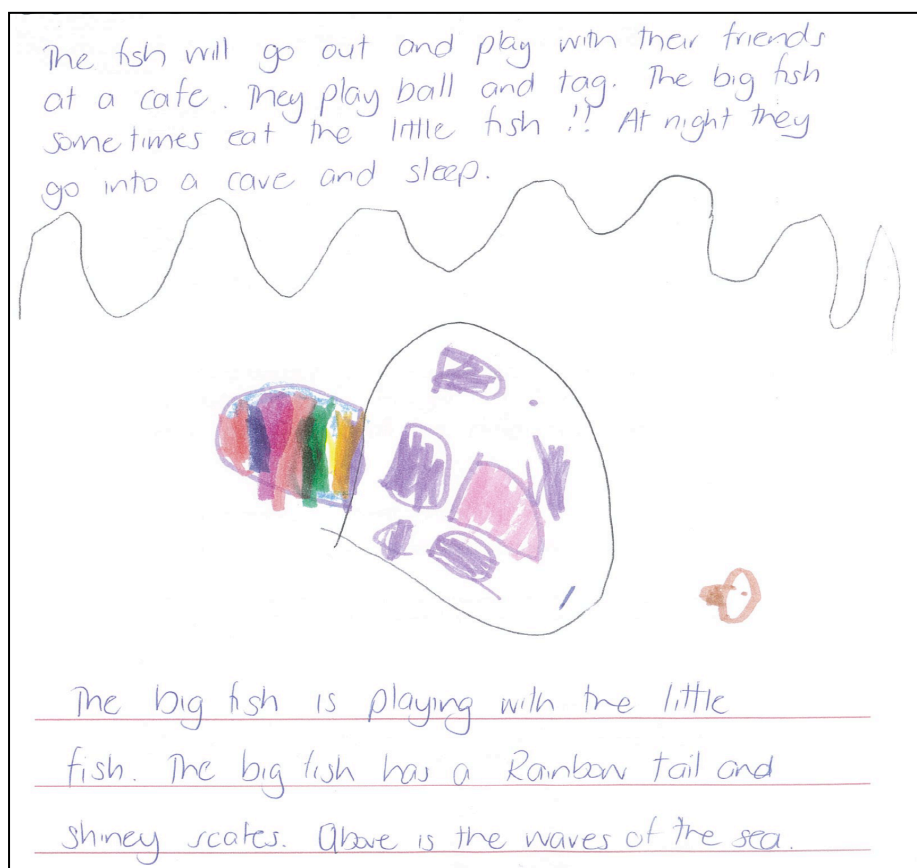 The fish will go out and play with their friends
at a cafe. They play ball and tag. The big fish
sometimes eat the little fish !! At night they
go into a cave and sleep.
The big fish is playing with the little
fish. The big fish has a Rainbow tail and
shiney scales. Above is the waves of the sea.